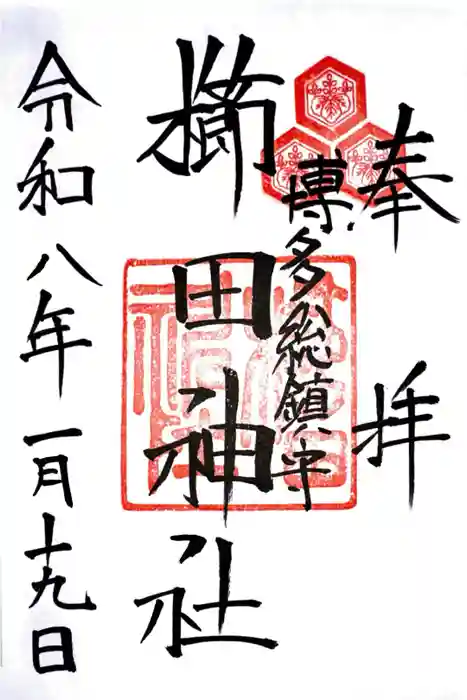 奉拝
博多總鎮守
櫛田神社
令和八年一月十九日